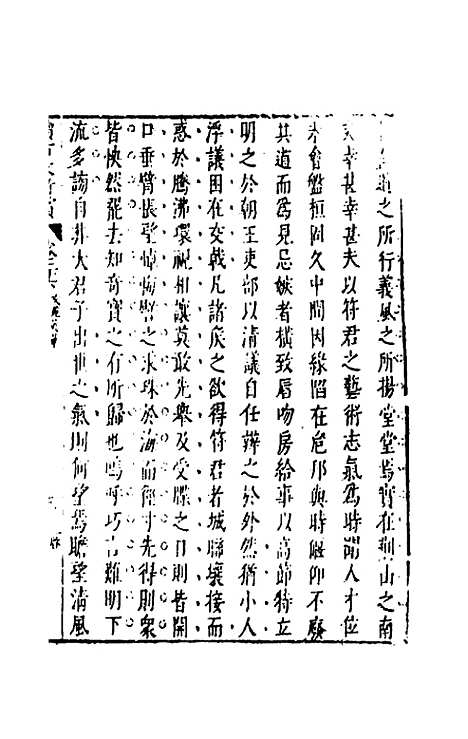 道之所行義風之所揚堂堂焉實在荆山之南
夫幸甚幸甚夫以符君之藝術志氣為時聞人才位
未會盤桓固久中間因緣陷在危邦與時偃仰不廢
其道而為見忌嫉者橫致唇吻房給事以高節特立
明之於朝王吏部以清議自任辯之於外然猶小人
浮議困在交戟凡諸侯之欲得符君者城聯壤接而
惑於騰沸環視相讓莫敢先舉及受牒之日則皆開
口垂臂悵望悼悔譬之求珠於海而徑寸先得則衆
皆怏然罷去知奇寶之有所歸也嗚呼巧言難明下
流多謗自非大君子出世之氣則何望焉瞻望清風